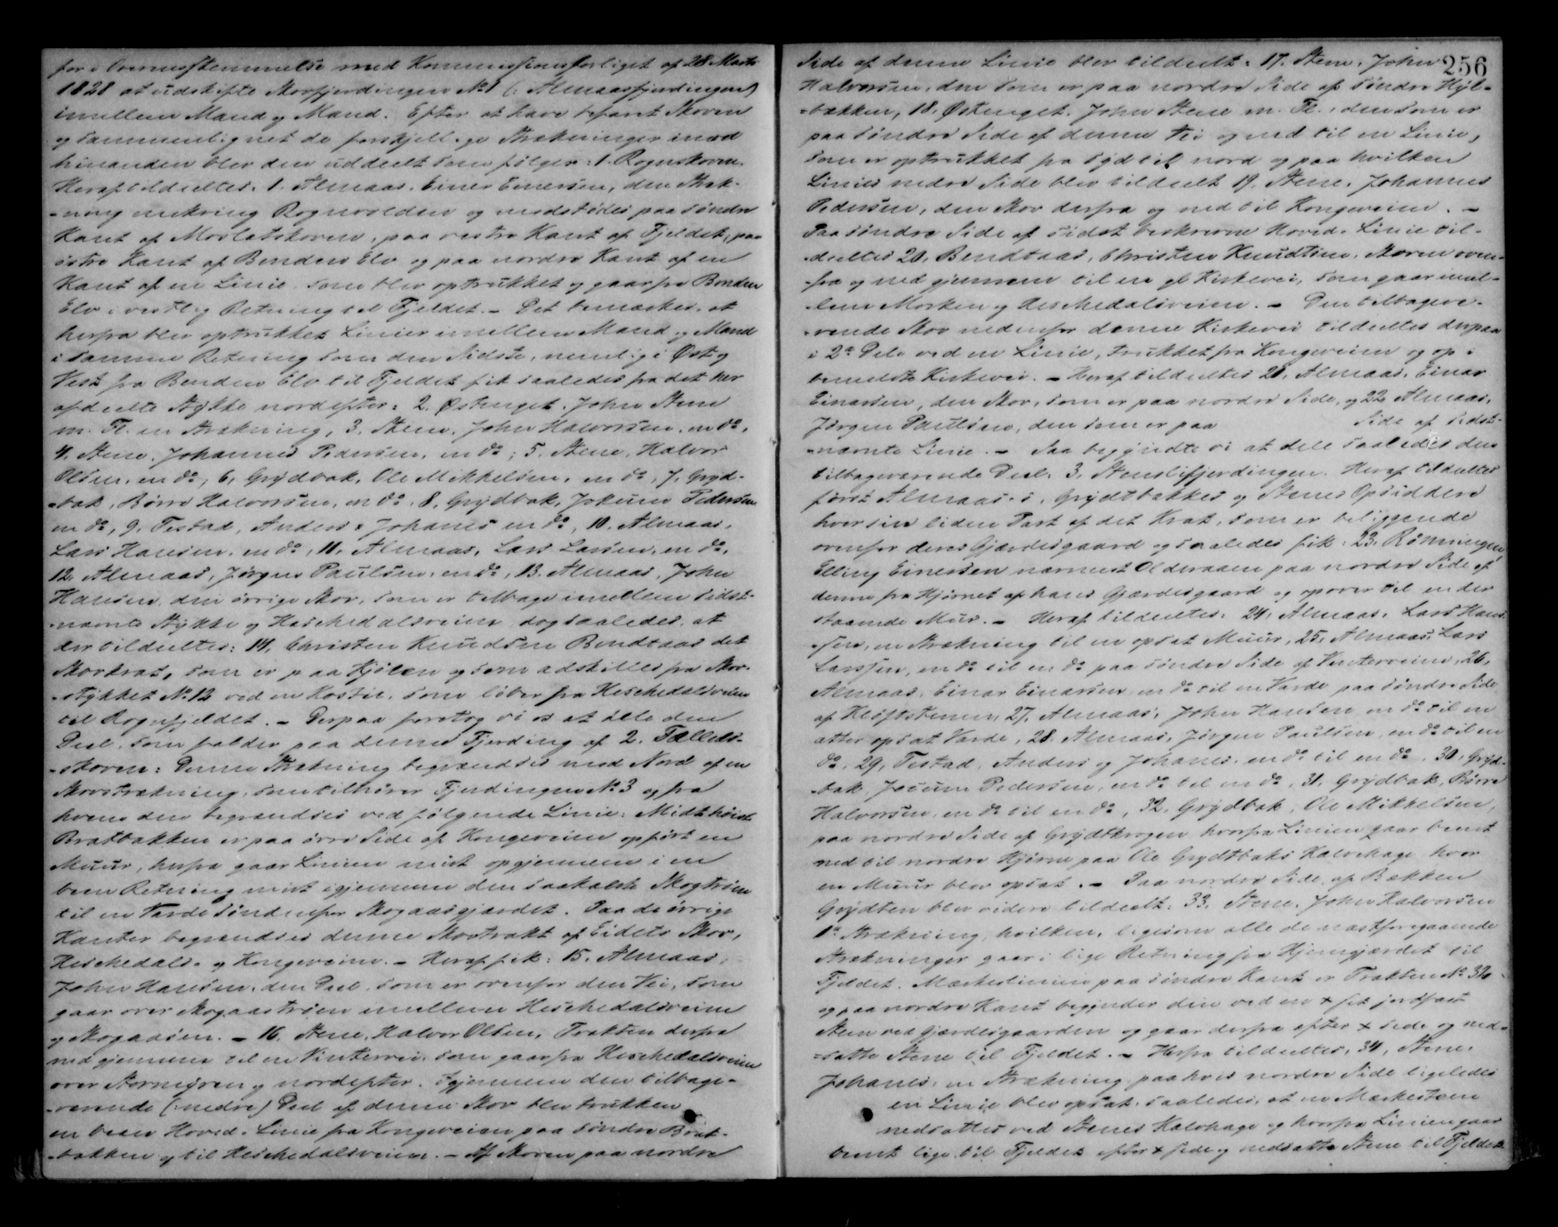 for i Overensstemmelse med Kommissionsforliget af 28 Marts
1828 at udskifte Skovfjerdingen No 1 (: Almaasfjerdingen)
imellem Mand og Mand. Efter at have befaret Skoven
og sammenlignet de forskjellige Strækninger imod
hinanden blev den uddeelt som følger: 1. Rognskoven.
Heraf tildeeltes: 1. Almaas, Einer Einersen, den Stræk-
-ning omkring Rognvolden og modstødes paa søndre
Kant af Mosletskoven, paa vestre Kant af Fjeldet, paa
østre Kant af Bonden Elv og paa nordre Kant af en
Kant af en Linie som blev optrukket og gaar fra Bonden
Elv i vestlig Retning til Fjeldet. – Det bemærkes, at
herfra blev optrukket Linier imellem Mand og Mand
i samme Retning som den Sidste, nemlig i Øst og
Vest fra Bonden Elv til Fjeldet fik saaledes fra det her
afdeelte Stykke nordefter: 2. Østenget, John Stene
m. Fl. en Strækning, 3. Stene, John Halvorsen, en do,
4. Stene, Johannes Pedersen, en do; 5. Stene, Halvor
Olsen, en do, 6, Grydbak, Ole Mikkelsen, en do, 7, Gryd-
-bak, Børre Halvorsen, en do, 8, Grydbak, Jocum Pedersen
en do, 9, Testad, Anders & Johanes en do, 10. Almaas,
Lars Hansen, en do, 11, Almaas, Lars Larsen, en do,
12. Almaas, Jørgen Paulsen, en do, 13. Almaas, John
Hansen, den øvrige Skov, som er tilbage imellem sidst-
-nævnte Stykke og Heschedalsveien dog saaledes, at
der tildeeltes: 14, Christen Knudsen Bendtaas det
Skovkrat, som er paa Kjølen og som adskilles fra Skov-
-stykket No 13 ved en som løber fra Heschedalsveien
til Rognfjeldet. – Derpaa foretog vi os at dele den
Deel, som falder paa denne Fjerding af 2. Fælleds-
-skoven: Denne Strækning begrændses mod Nord af en
Skovstrækning, som tilhører Fjerdingen No 3 og fra
hvem den begrændses ved følgende Linie: Midt
Bratbakken er paa øvre Side af Kongeveien opført en
Muur, herfra gaar Linien midt opgjennem i en
been Retning midt igjennem den saakaldte
til en Varde søndenfor Skogaasgjærdet. Paa de øvrige
Kanter begrændses denne Skovtrakt af Eidets Skov,
Heschedals- og Kongeveien. – Heraf fik: 15. Almaas,
John Hansen, den Deel, som er ovenfor den Vei, som
gaar over imellem Heschedalsveien
og Skogaasen. – 16. Stene, Halvor Olsen, Trakten derfra
nedgjennem til en Vinterveie, som gaar fra Heschedalsveien
over Stormyren og nordefter. Igjennem den tilbage-
-værende (nedre) Deel af denne Skov blev trukken
en been Hoved-Linie fra Kongeveien paa søndre Brat-
-bakken og til Heschedalsveien. – Af Skoven paa nordre
256
Side af denne Linie blev tildeelt: 17. Stene, John
Halvorsen, den som er paa nordre Side af søndre
-bækken, 18. Østenget, John Stene m. Fl., den som er
paa søndre Side af denne og ned til en Linie,
som er optrukket fra syd til nord og paa hvilken
Linies nedre Side blev tildeelt 19. Stene, Johannes
Pedersen, den Skov derfra og ned til Kongeveien. –
Paa søndre Side af sidst beskrevne Hoved-Linie til-
-deeltes 20, Bendtaas, Christen Knudtsen, Skoven oven-
-fra og nedgjennem til en gl. Kirkevei, som gaar imel-
-lem Morken og Heschedalsveien. – Den tilbagevæ-
-rende Skov nedenfor denne Kirkevei tildeeltes derpaa
i 2de Dele ved en Linie, trukket fra Kongeveien og op i
bemeldte Kirkevei. – Heraf tildeeltes 21, Almaas, Einar
Einarsen, den Skov, som er paa nordre Side, og 22, Almaas,
Jørgen Pauelsen, den som er paa Side af sidst-
-nævnte Linie. – Saa begyndte vi at dele saaledes den
tilbageværende Deel: 3. Heraf tildeeltes
først Almaas's, Grydtbakkes og Stenes Opsiddere
hver sin liden Part af det Krat, som er beliggende
ovenfor deres Gjærdesgaard og saaledes fik: 23. Rønningen
Elling Einersen nærmest Olderaaen paa nordre Side af
denne fra Hjørnet af hans Gjærdesgaard og opover til en der
staaende Muur. – Heraf tildeeltes: 24, Almaas, Lars Han-
-sen, en Strækning til en opsat Muur, 25, Almaas, Lars
Larssen, en do til en do paa søndre Side af Vinterveien, 26,
Almaas, Einar Einarsen, en do til en Varde paa søndre Side
af Kløftstenen, 27, Almaas, John Hansen en do til en
atter opsat Varde, 28. Almaas, Jørgen Paulsen, en do til en
do, 29, Testad, Anders og Johanes, en do til en do, 30, Gryd-
-bak, Jocum Pedersen, en do til en do, 31, Grydbak, Børre
Halvorsen, en do til en do, 32, Grydbak, Ole Mikkelsen,
paa nordre Side af Grydtkrogen, hvorfra Linien gaar beent
ned til nordre Hjørne paa Ole Grydtbaks Kalvehage, hvor
en Muur blev opsat. – Paa nordre Side af Bækken
Grydten blev videre tildeelt: 33. Stene, John Halvorsen
1 Strækning, hvilken, ligesom alle de næstforegaaende
Strækninger gaar i lige Retning fra Hjemgjærdet til
Fjeldet. Mærkeslinien paa søndre Kant er Trakten No 32
og paa nordre Kant begynder den ved en + sat jordfast
Steen ved Gjærdesgaarden og gaar derfra efter + sede og ned-
-satte Stene til Fjeldet. – Herfra tildeeltes, 34, Stene,
Johanes, en Strækning paa hvis nordre Side ligeledes
en Linie blev opsat, saaledes, at en Mærkesteen
nedsattes ved Stenes Kalvhage og hvorfra Linien gaar
beent lige til Fjeldet efter + sede og nedsatte Stene til Fjeldet